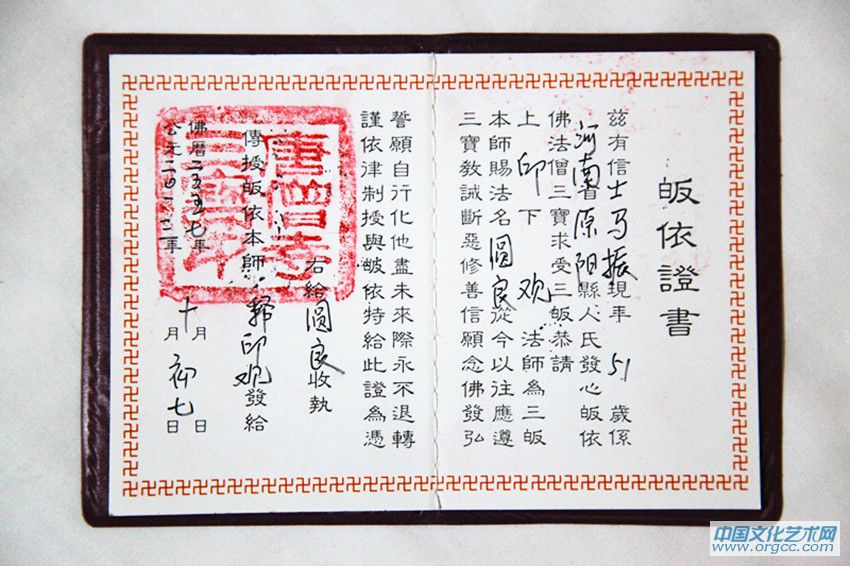 皈依證書
茲有信士马振現年51歲係
河南省原阳縣人氏發心皈依
佛法僧三寶求受三皈恭請
上印下观法師為三皈
本師賜法名圆良從今以往應遵
三寶教誡斷惡修善信願念佛發弘
誓願自行化他盡未來際永不退轉
謹依律制授與皈依特給此證為憑
右給圆良收執
傳授皈依本師释印观發給
佛曆二五五七年十月日
公元二〇一三年月初七日
唐僧寺
三寳印
中国文化艺术网
www.orgcc.com